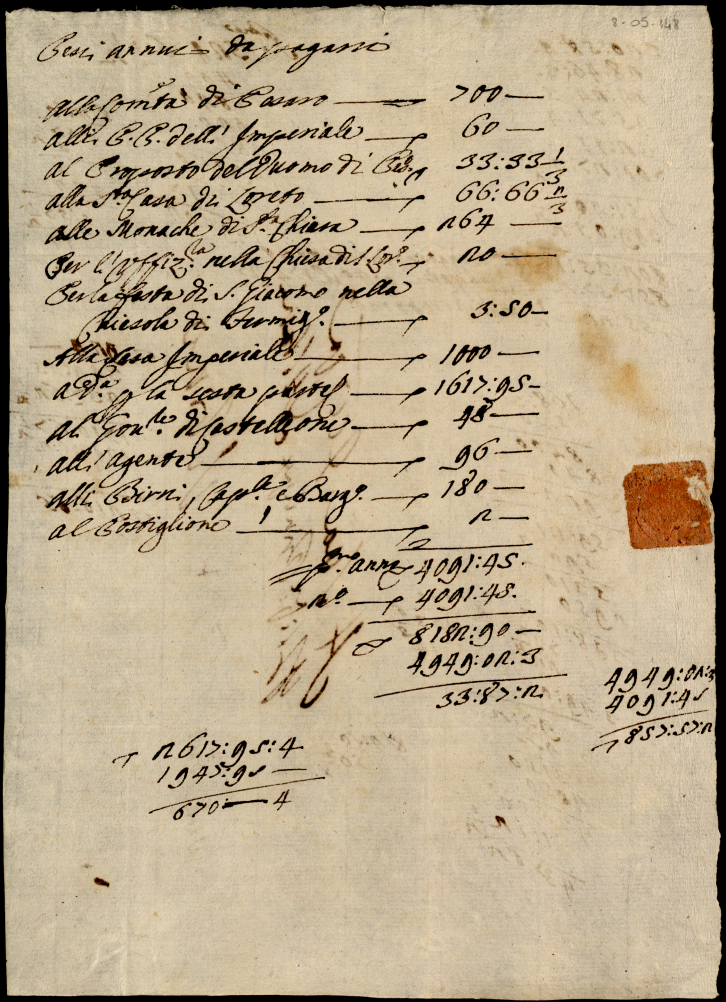 8-05-148
Pesi annui da pagarsi
Alla Com.tà di Pesaro — 700 —
alli P. P. dell' Imperiale — 60 —
al Proposto del Duomo di Pes.o 33:33 1/3
alla S.ta Casa di Loreto — 66:66 2/3
alle Monache di S.ta Chiara — 264 —
Per l'Uffiz.ra nella Chiesa di Lor.o — 20 —
Per la festa di S. Giacomo nella
Chiesola di Fermig.o — 3:50 —
Alla Casa Imperiale — 1000 —
a d.a p la sesta parte — 1617:95 —
al Gou.re di Castellione — 48 —
all' agente — 96 —
alli Birri, Cap.le e Barg.o — 180 —
al Postiglione — 2 —
p.mo anno 4091:45.
2.o — 4091:45.
8182:90 —
4949:02:3
33:87:2
4949:02:3
4091:45
857:57:2
2617:95:4
1947:95 —
670 — 4